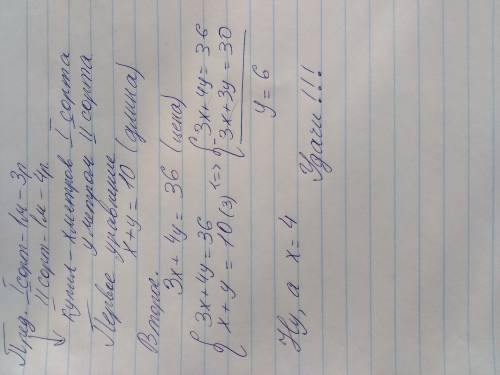 Пред. I сорт - 1м - 3р
II сорт - 1м - 4р.
Купил - x метров I сорта
y метров II сорта
Первое уравнение
x + y = 10 (длина)
Второе.
3x + 4y = 36 (цена)
{ 3x + 4y = 36 <=> { 3x + 4y = 36
x + y = 10 (3) - 3x + 3y = 30
y = 6
Ну, а x = 4
Удачи!!!